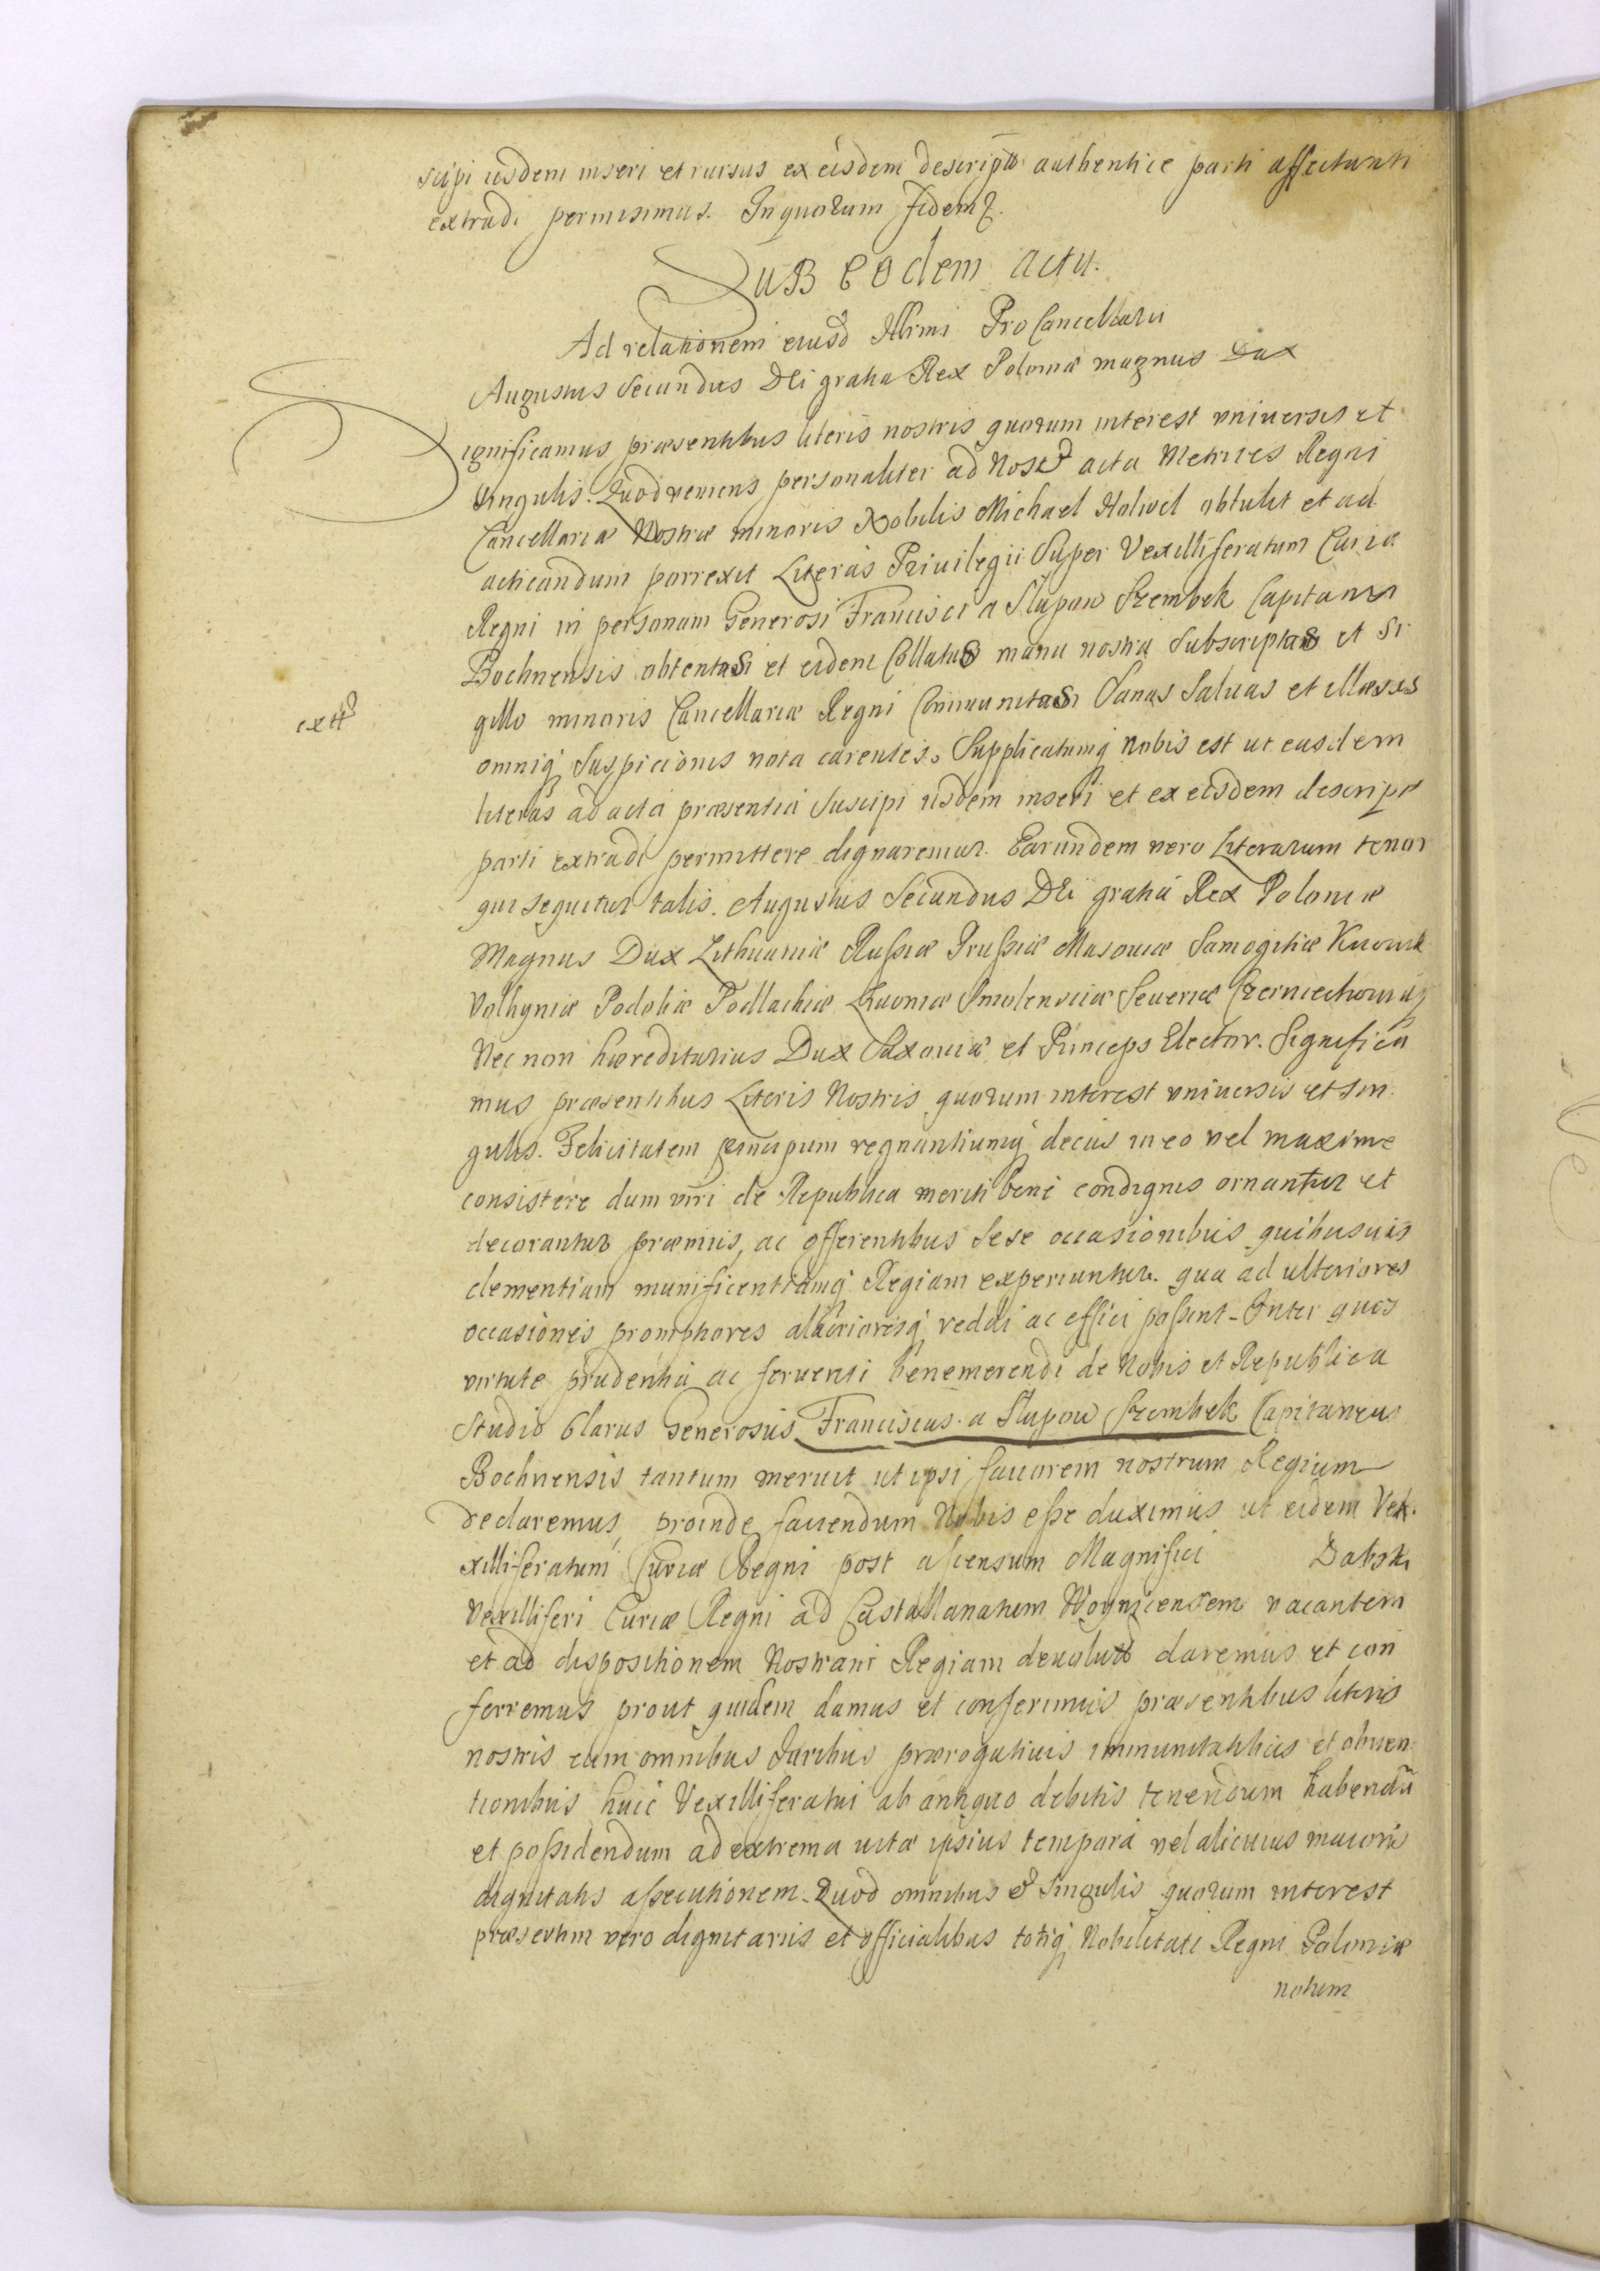 scipi iisdem inseri et rursus ex eisdem descriptas authentice parti affectanti
extradi permisimus. In quorum fidem
Sub eodem actu.
Ad relationem eiusd Illrmi Pro Cancellarii
Augustus Secundus Dei gratia Rex Poloniæ magnus Dux
Significamus præsentibus literis nostris quorum interest vniuersis et
singulis. Quod veniens personaliter ad Nostra acta Metrices Regni
Cancellariæ Nostræ minoris Nobilis Michael obtulit et ad
acticandum porrexit Literas Priuilegii Super Vexilliferatum Curiæ
Regni in personam Generosi Francisci a Slupow Szembek Capitanei
Bochnensis obtentas et eidem Collatas manu nostra Subscriptas et Si
gillo minoris Cancellariæ Regni Communitas Sanas Saluas et illæsas
extd
omniq Suspicionis nota carentes. Supplicatumq Nobis est ut easdem
literas ad acta præsentia Suscipi iisdem inseri et ex eisdem descript
parti extradi permittere dignaremur. Earundem vero Literarum tenor
qui sequitur talis. Augustus Secundus DEi gratia Rex Poloniæ
Magnus Dux Lithuaniæ Rußiæ Prußiæ Masouiæ Samogitiæ Kiiouiæ
Volhyniæ Podoliæ Podlachiæ Liuoniæ Smolensciæ Seueriæ Czerniechouiæq
Nec non hæreditarius Dux Saxoniæ et Princeps Elector. Significa
mus præsentibus Literis Nostris quorum interest vniuersis et sin
gulis. Felicitatem principum regnantiumq decus in eo vel maxime
consistere dum viri de Republica meriti bene condignis ornantur et
decorantur præmiis, ac offerentibus Sese occasionibus quibusuis
clementiam munificentiamq Regiam experiuntur. qua ad ulteriores
occasiones promptiores alacrioresq reddi ac effici poßint. Inter quos
virtute prudentia ac feruenti benemerendi de Nobis et Republica
Studio Clarus Generosus Franciscus a Slupow Szembek Capitaneus
Bochnensis tantum meruit ut ipsi fauorem nostrum Regium
declaremus, proinde faciendum Nobis eße duximus ut eidem Vex.
xilliferatum Curiæ Regni post ascensum Magnifici Dabski
Vexilliferi Curiæ Regni ad Castellanatum Woynicensem vacantem
et ad dispositionem Nostram Regiam deuolut daremus et con
ferremus prout quidem damus et conferimus præsentibus literis
nostris cum omnibus Juribus prærogatiuis immunitatibus et obuen
tionibus huic Vexilliferatui ab antiquo debitis tenendum habendũ
et poßidendum ad extrema vitæ ipsius tempora vel alicuius maioris
dignitatis aßecutionem. Quod omnibus & Singulis quorum interest
præsertim vero dignitariis et officialibus totiq Nobilitati Regni Poloniæ
notum